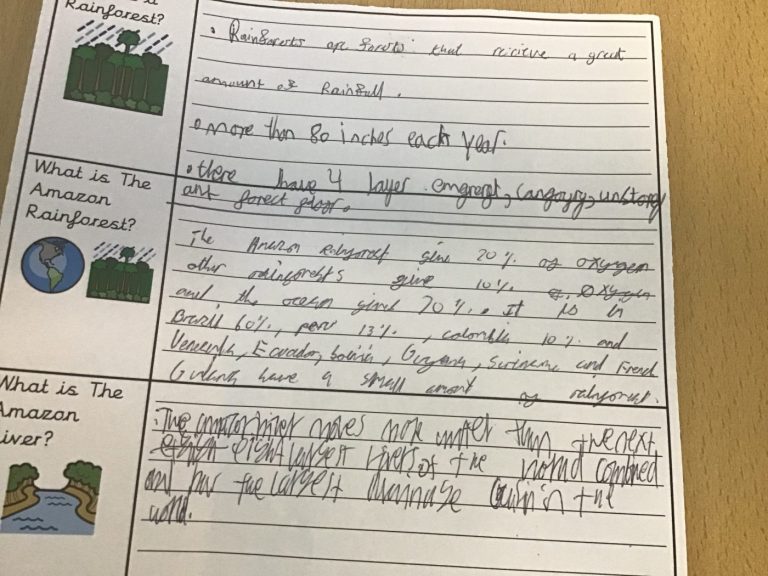 Rainforest?
• Rainforests are forests that recieve a great
amount of Rainfall.
• more than 80 inches each year.
• there have 4 layer emgregt, cangoyry, unstorey
ant forect floor.
What is The
Amazon
Rainforest?
The Amazon rainforest give 20% of oxygen
other rainforests give 10%
and the ocean gives 70%. It is in
Brazil 60%, peru 13%, colombia 10% and
Venezuela, Ecuador, bolivia, Guyana, Suriname and French
Guiana have a small amont of rainforest.
What is The
Amazon
River?
• The amazon river moves more water than the next
eight largest rivers of the world combined
and has the largest drainage basin in the
world.